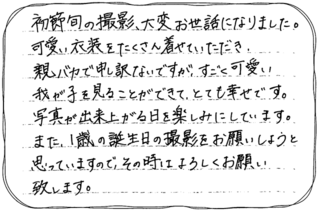 初節句の撮影、大変お世話になりました。
可愛い衣装をたくさん着せていただき、
親バカで申し訳ないですが、すごく可愛い
我が子を見ることができて、とても幸せです。
写真が出来上がる日を楽しみにしています。
また、1歳の誕生日の撮影をお願いしようと
思っていますので、その時はよろしくお願い
致します。